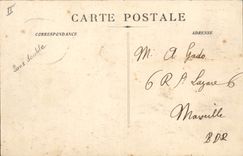 II
CARTE POSTALE
CORRESPONDANCE
ADRESSE
M. A Gado
6 R St Lazare 6
Marseille
B.D.R